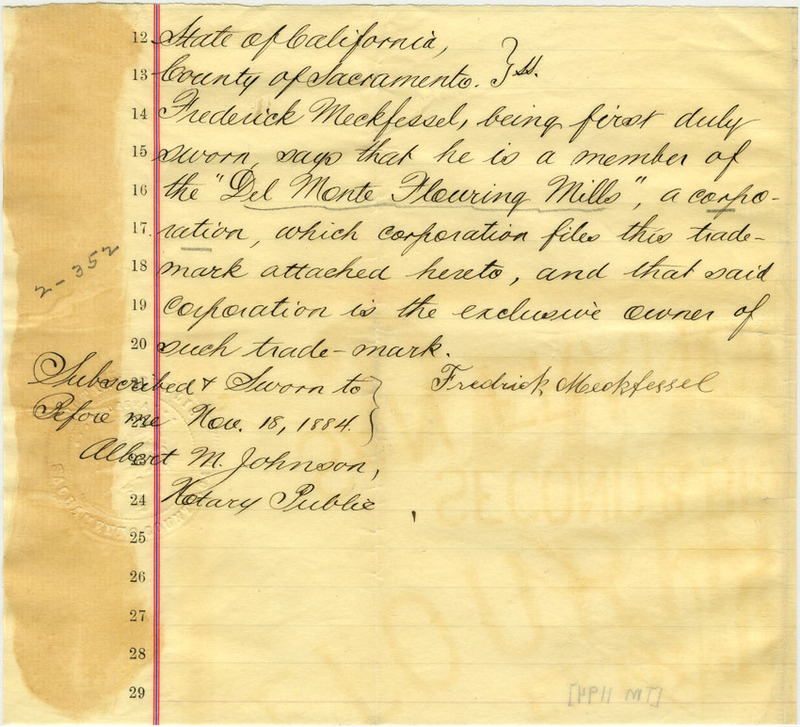 12 State of California,
13 County of Sacramento. } ss.
14 Frederick Meckfessel, being first duly
15 sworn, says that he is a member of
16 the "Del Monte Flouring Mills", a corpo-
17 ration, which corporation files this trade-
18 mark attached hereto, and that said
19 corporation is the exclusive owner of
20 such trade-mark.
2-352
21 Subscribed & Sworn to } Fredrick Meckfessel
22 Before me Nov. 18, 1884.
23 Albert M. Johnson,
24 Notary Public
25
26
27
28
29